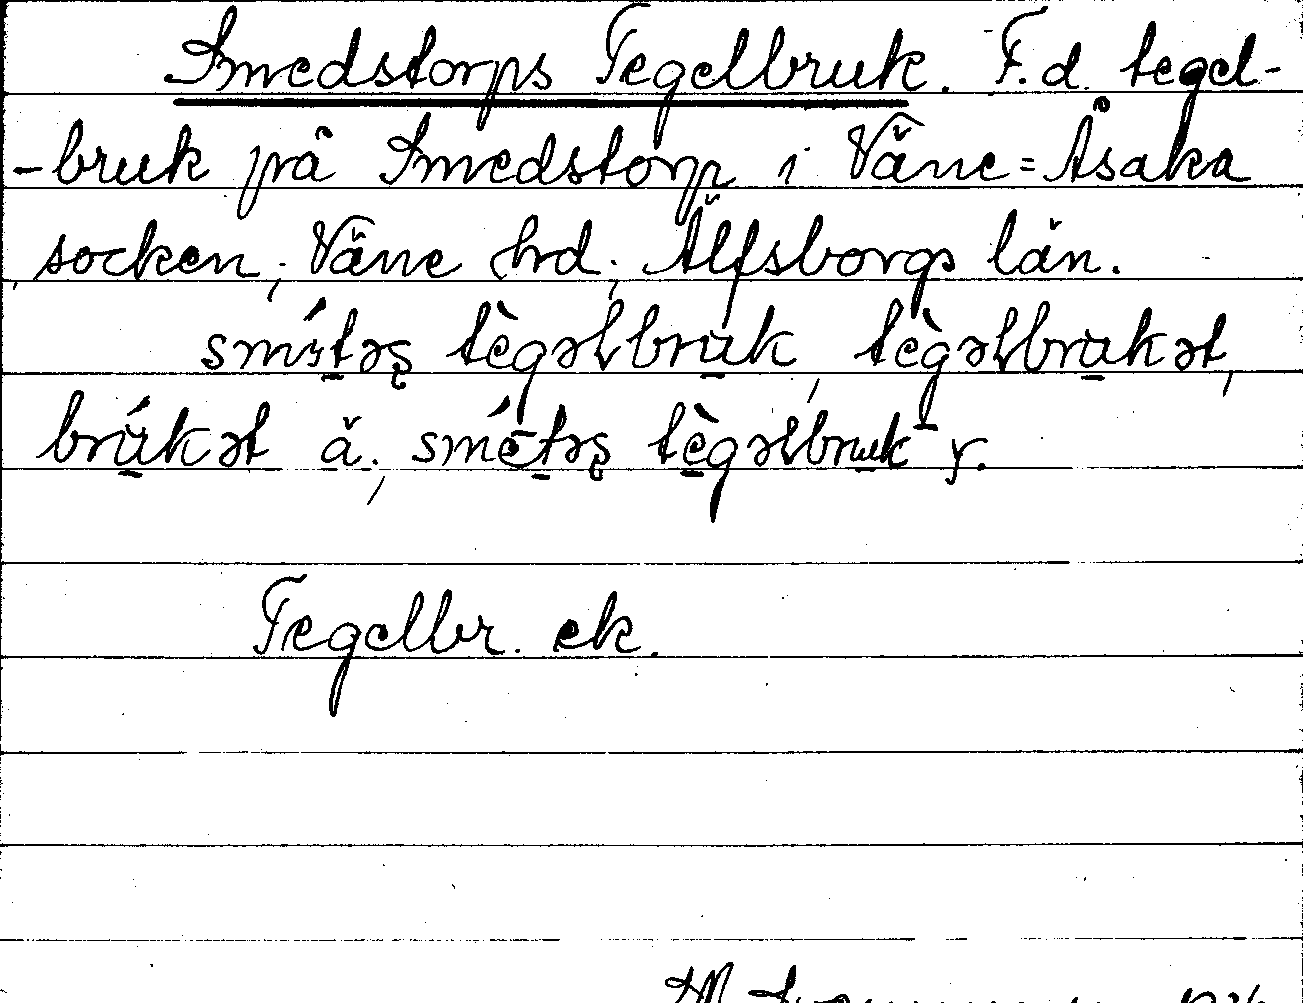 Smedstorps Tegelbruk. F.d. tegel-
-bruk på Smedstorp i Väne=Åsaka
socken, Väne hrd, Älfsborgs län.
smı́t̠əʂ tègəłbru̠k, tègəłbru̠kət,
brú̠kət ä.; smét̠əʂ tè̠gəłbru̠k y.
Tegelbr. ek.